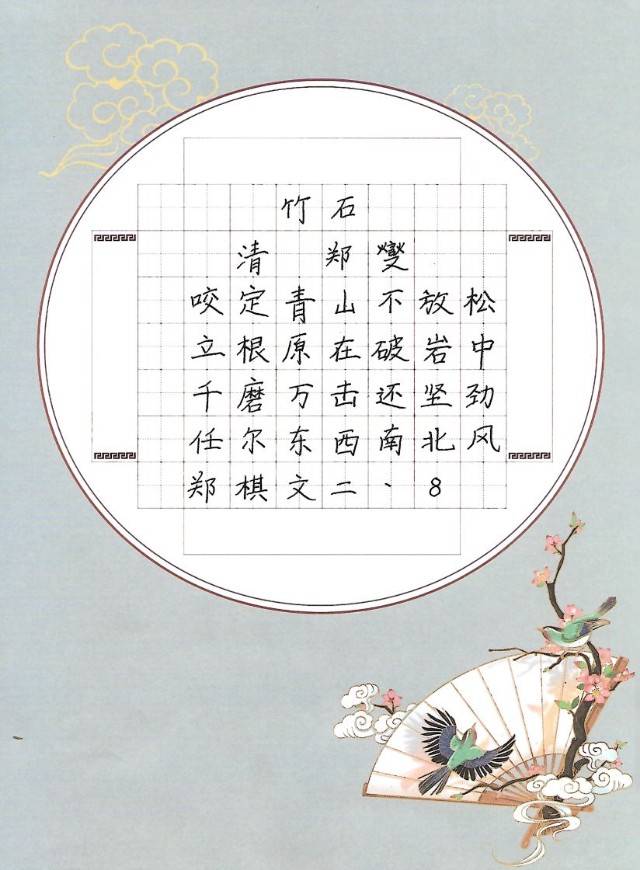 竹石
清 郑燮
咬定青山不放松
立根原在破岩中
千磨万击还坚劲
任尔东西南北风
郑棋文二、8